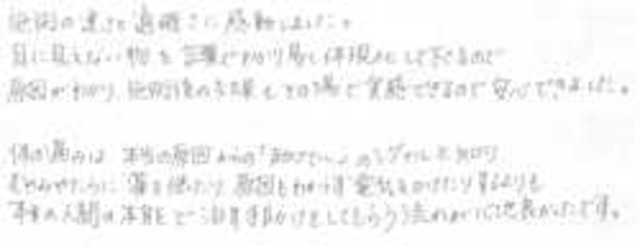 施術の速さと適確さに感動しました。
目に見えない物を言葉でわかり易く体現化して下さるので
原因がわかり、施術後の効果もその場で実感できるので安心できました。
体の痛みは 本当の原因からの「助けてー」のシグナルと知り
むやみやたらに 薬を使ったり 原因もわからず電気をかけたりするよりも
本来の人間の 手助けをしてもらう 流れが心地良かったです。